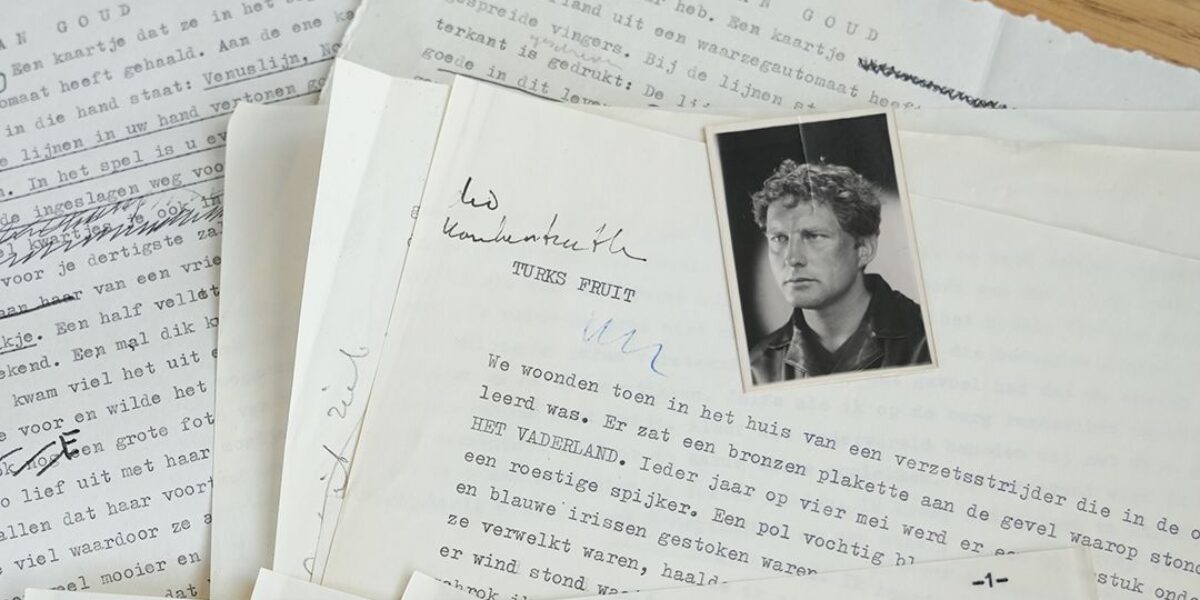 AN GOUD
Een kaartje dat ze in het
omaat heeft gehaald. Aan de ene ka
in die hand staat: Venuslijn, No
e lijnen in uw hand vertonen g
n. In het spel is u e
de ingeslagen weg voo
kwartjes je ook in
voor je dertigste zal
aan haar van een vrie
kje. Een half vellet
ekend. Een mal dik k
kwam viel het uit
e voor en wilde het
ok nog een grote fot
o lief uit met haar
allen dat haar voort
viel waardoor ze a
eel mooier en
dat
AN GOUD
heb. Een kaartje
land uit een waarzegautomaat heef
gespreide vingers. Bij de lijnen st
terkant is gedrukt: De li
goede in dit leve
TURKS FRUIT
We woonden toen in het huis van een verzetsstrijder die in de o
leerd was. Er zat een bronzen plakette aan de gevel waarop stond
HET VADERLAND. Ieder jaar op vier mei werd er ee
een roestige spijker. Een pol vochtig bl
en blauwe irissen gestoken waren
ze verwelkt waren, haald
er wind stond wa
stuk ond
-1-